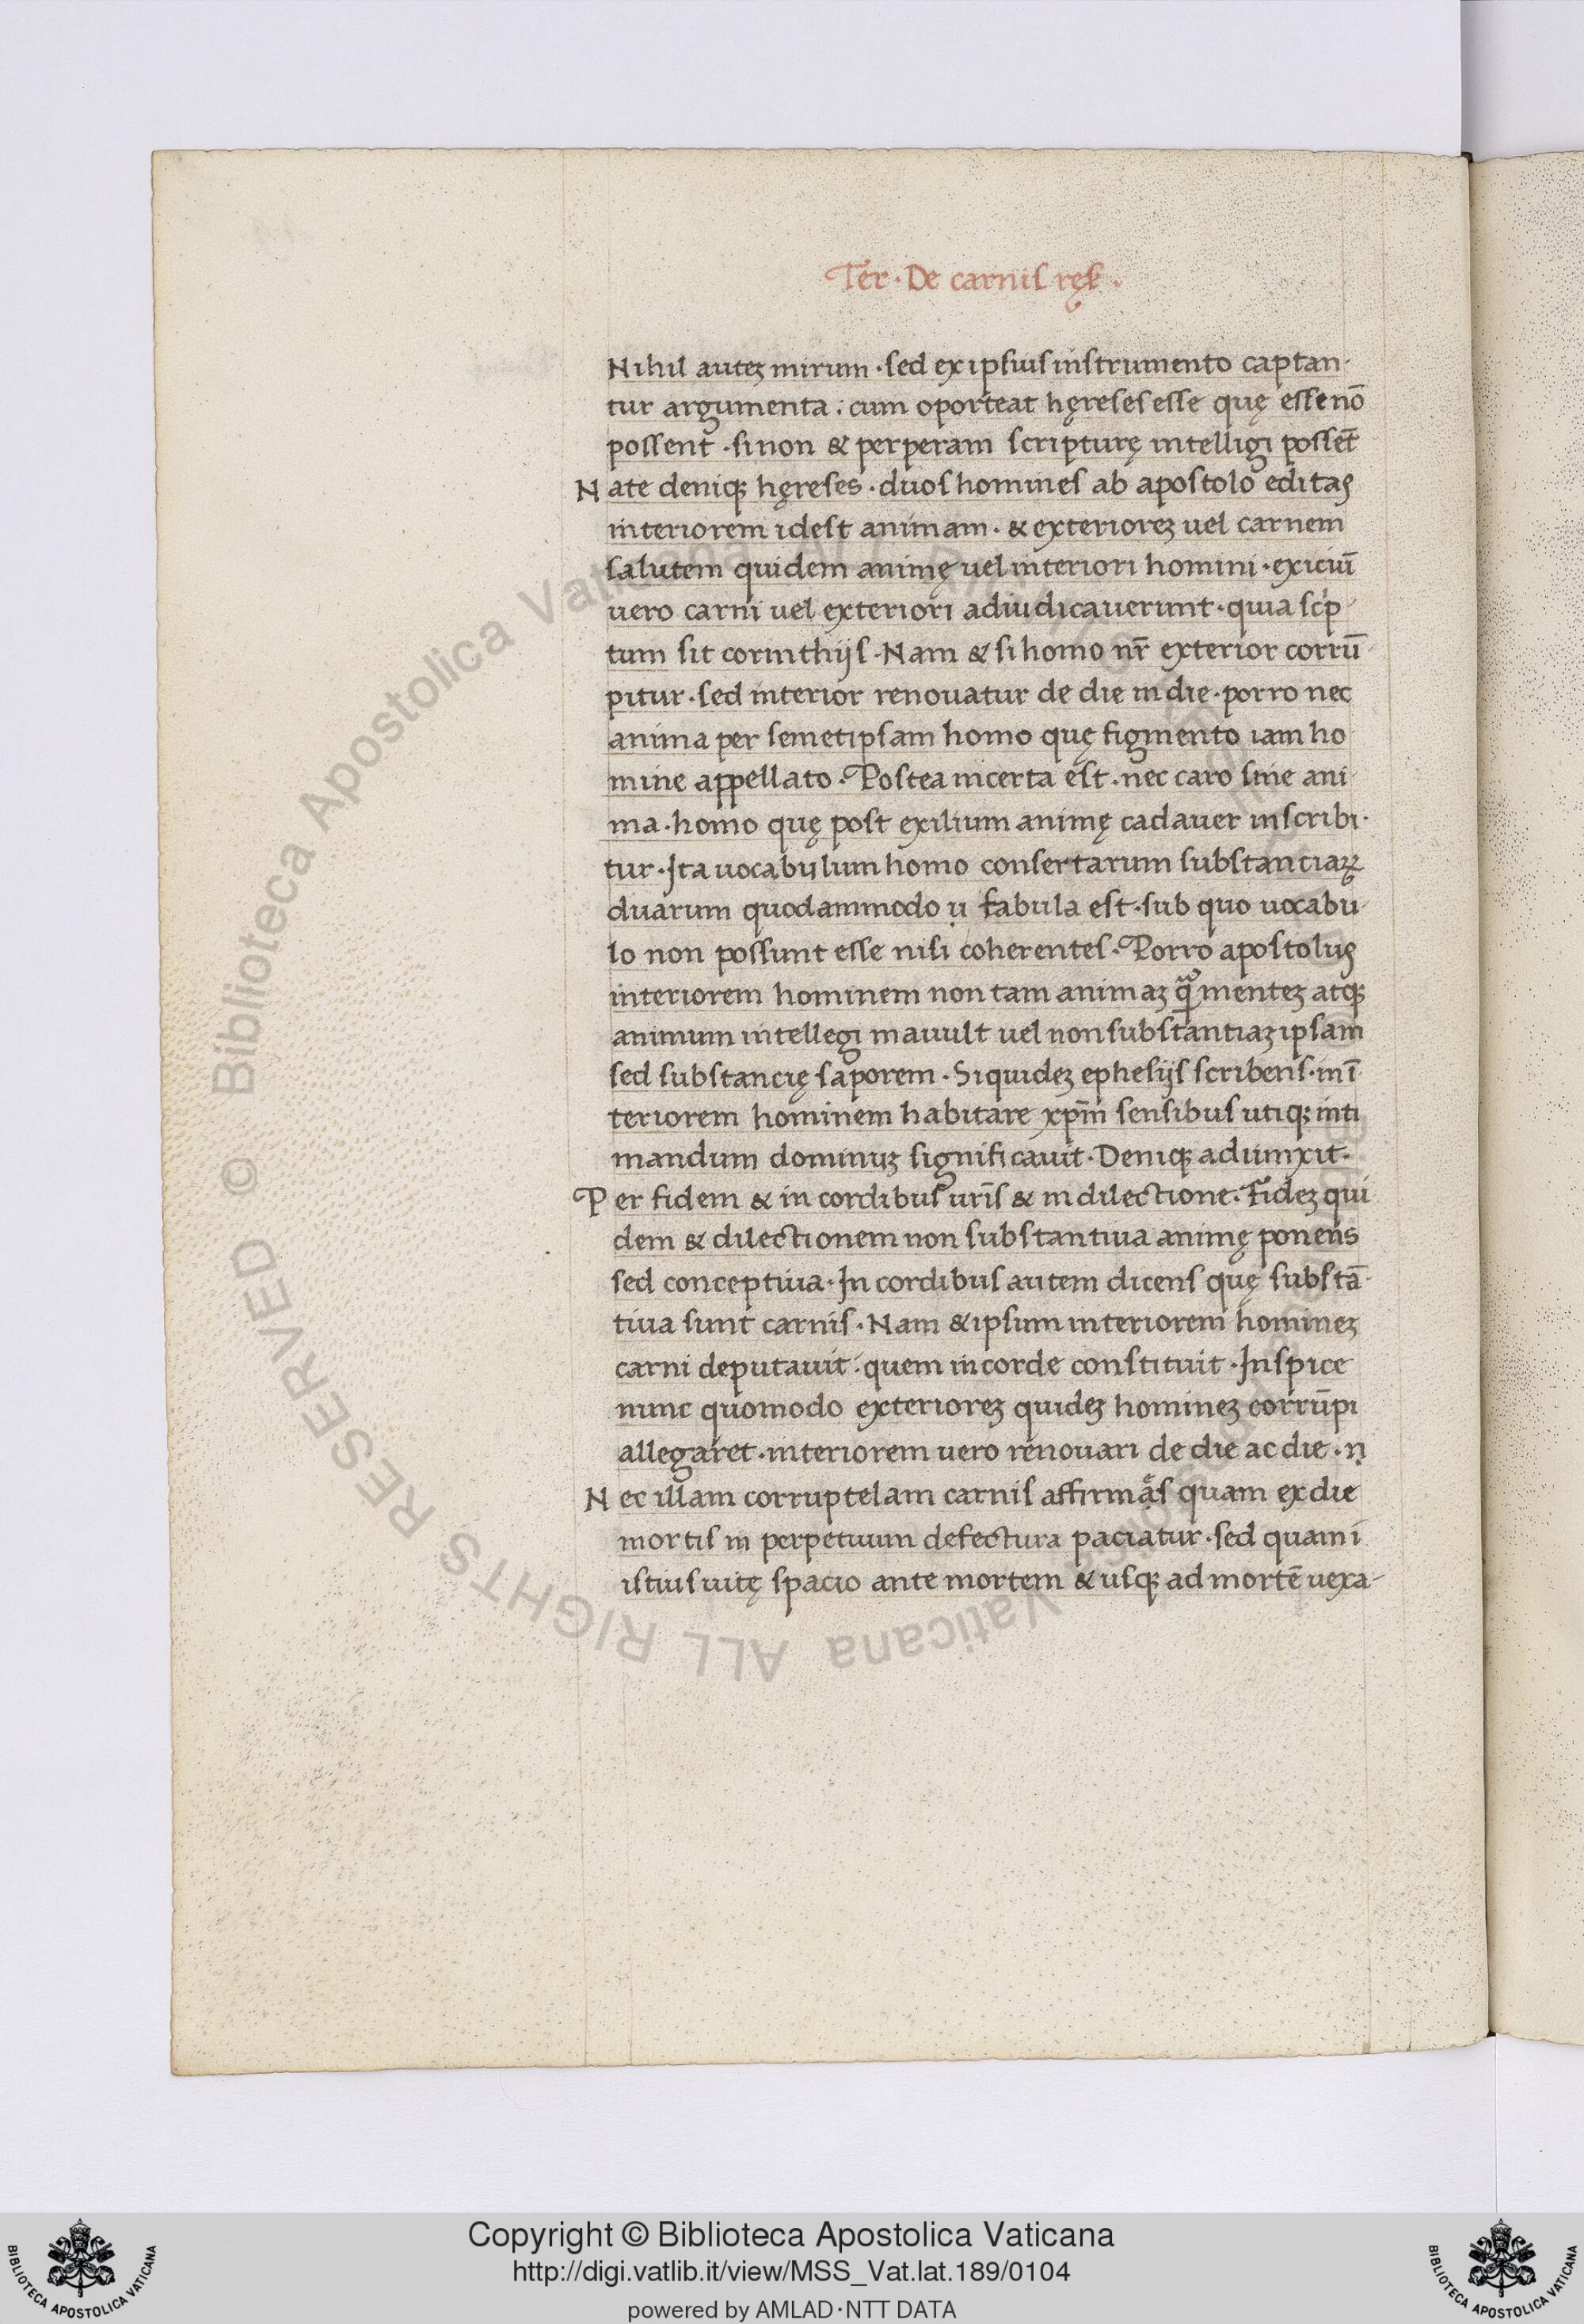 Ter · De carnis ręſ ·
Nihil auteꝫ mirum · sed ex ipsius instrumento captan-
tur argumenta : cum oporteat hęreses esse quę esse nō
possent · si non & perperam scripturę intelligi possēt
Nate deniqꝫ hęreses · duos homines ab apostolo editas
interiorem idest animam · & exterioreꝫ uel carnem
salutem quidem animę uel interiori homini · exiciū
uero carni uel exteriori adiudicauerunt · quia scip-
tum sit corinthijs · Nam & si homo nr̄ exterior corrū-
pitur · sed interior renouatur de die in die · porro nec
anima per semetipsam homo quę figmento iam ho-
mine appellato · Postea incerta est · nec caro sine ani-
ma · homo quę post exilium animę cadauer inscribi-
tur · Ita uocabulum homo consertarum substantiaꝝ
duarum quodammodo ụ fabula est · sub quo uocabu-
lo non possunt esse nisi coherentes · Porro apostolus
interiorem hominem non tam animaꝫ ꝙ̃ menteꝫ atqꝫ
animum intellegi mauult uel non substantiaꝫ ipsam
sed substancię saporem · Siquideꝫ ephesijs scribens · in ī-
teriorem hominem habitare xpm̄ sensibus utiqꝫ inti
mandum dominuꝫ significauit · Deniqꝫ adiunxit ·
Per fidem & in cordibus ur̄is & in dilectione · Fideꝫ qui
dem & dilectionem non substantiua animę ponens
sed conceptiua · In cordibus autem dicens quę substā-
tiua sunt carnis · Nam & ipsum interiorem homineꝫ
carni deputauit · quem in corde constituit · Inspice
nunc quomodo exterioreꝫ quideꝫ homineꝫ corrūpi
allegaret · interiorem uero renouari de die ac die · ṇ
Nec illam corruptelam carnis affirmạͤs quam ex die
mortis in perpetuum defectura paciatur · sed quam i
istius uitę spacio ante mortem & usqꝫ ad mortē uexa-
Copyright © Biblioteca Apostolica Vaticana
http://digi.vatlib.it/view/MSS_Vat.lat.189/0104
powered by AMLAD·NTT DATA
BIBLIOTECA APOSTOLICA VATICANA
BIBLIOTECA APOSTOLICA VATICANA